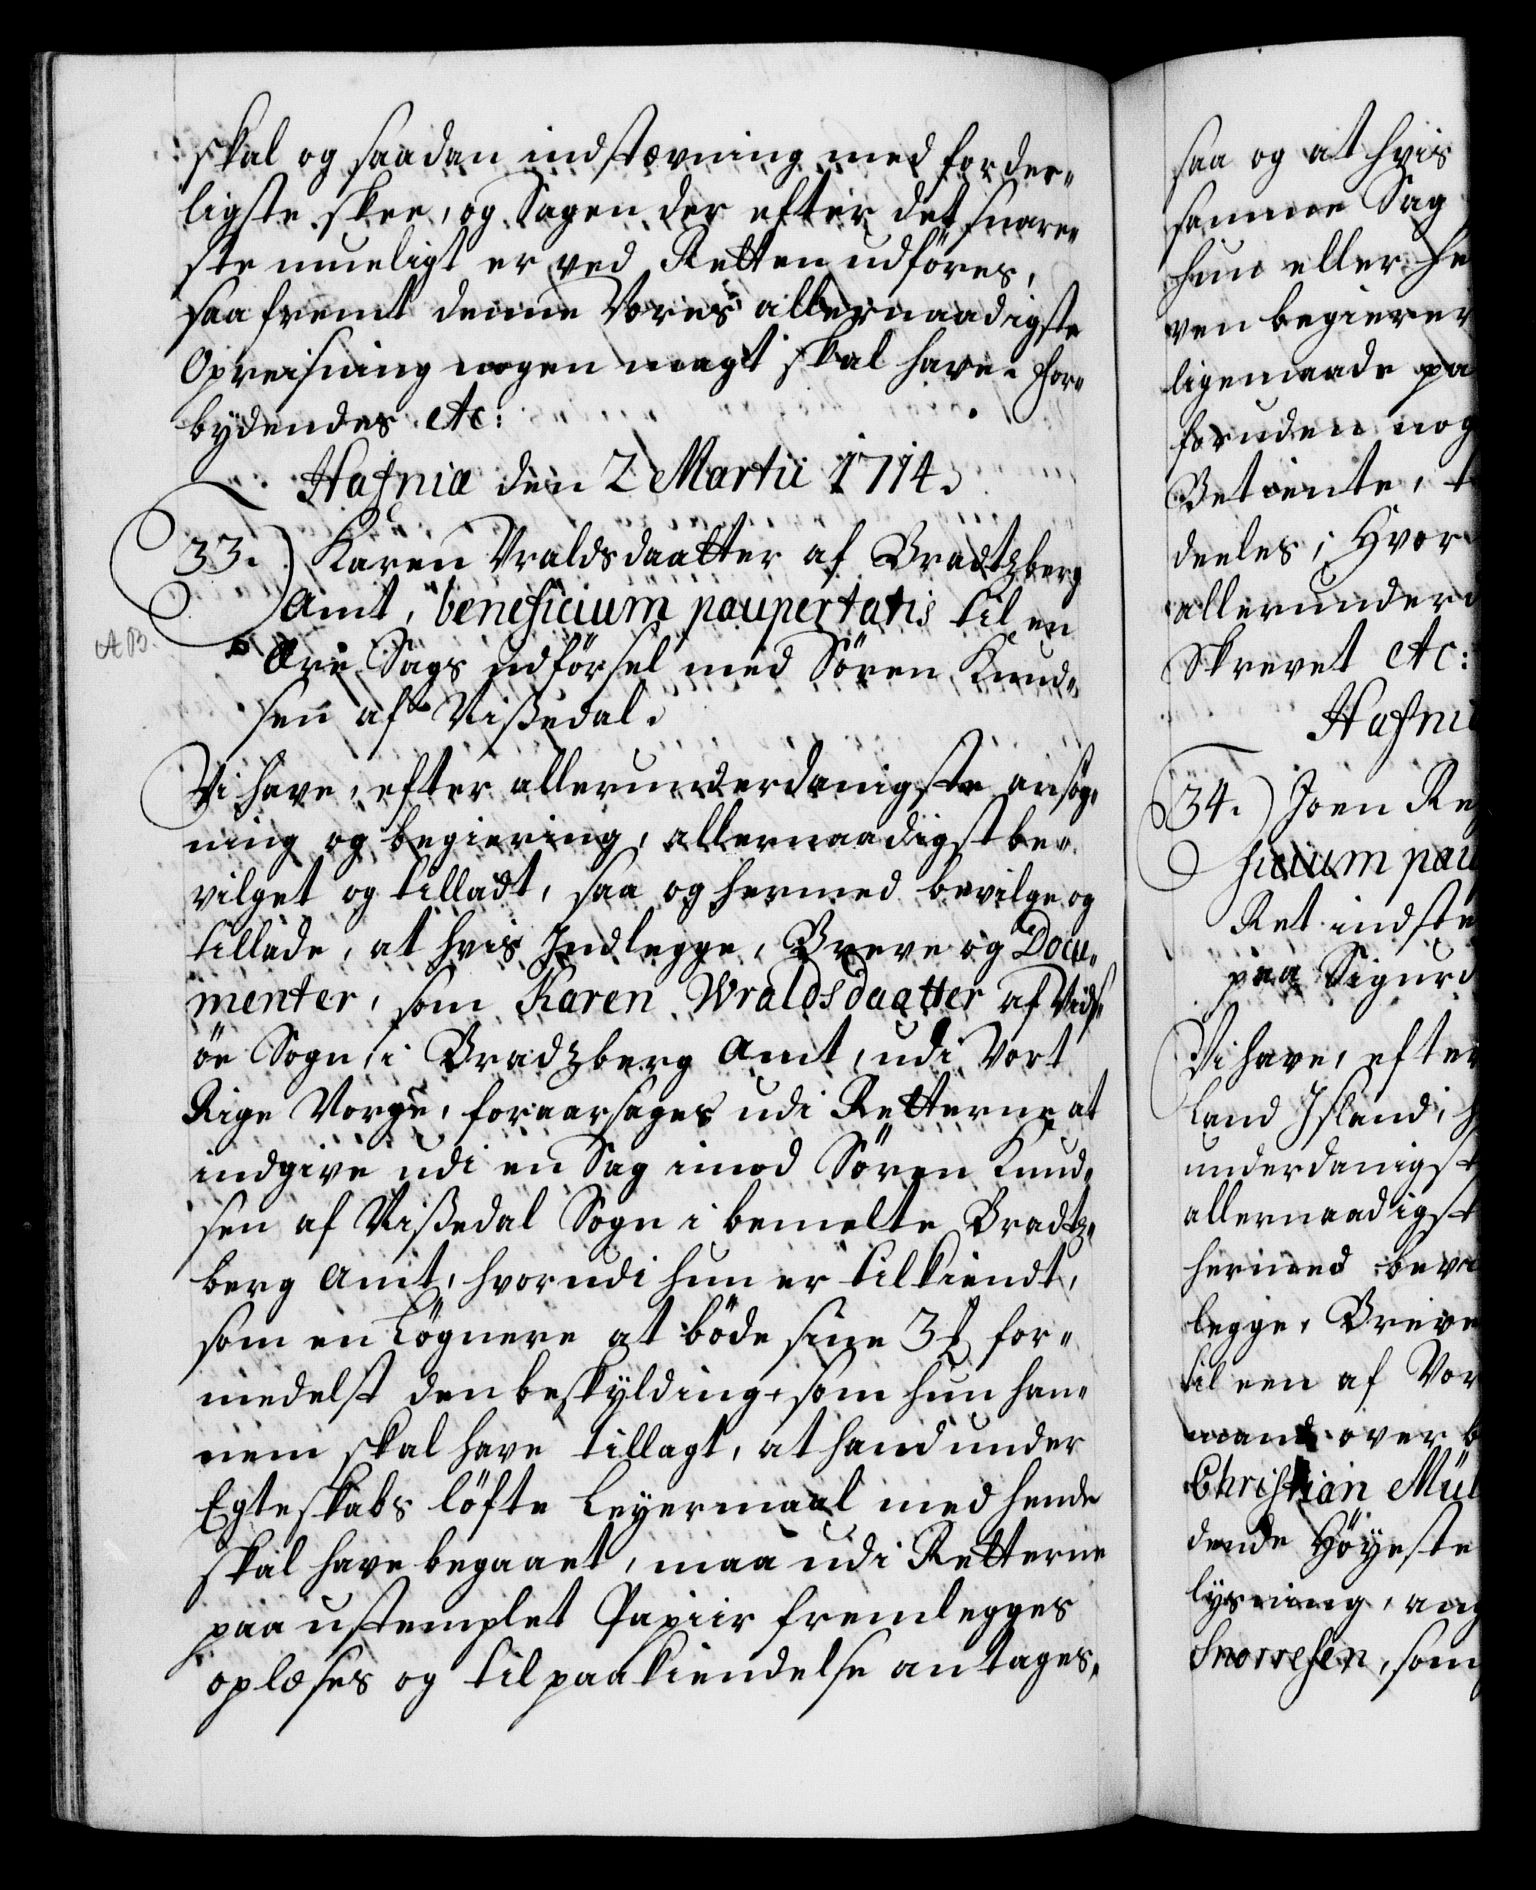 skal og saadan indstævning med forder„
ligste skee, og Sagen der efter det snare„
ste mueligt er ved Retten udföres,
saa fremt denne Vores allernaadigste
Opreisning nogen magt skal have. For„
bÿdendes etc:
Hafniæ den 2 Martii 1714.
33.) Karen Vraldsdaatter af Bradtzberg
Amt, beneficium paupertatis til en
AB.
Ære Sags udförsel med Sören Knud„
sen af Nißedal.
Vi have, efter allerunderdanigste ansög„
ning og begiering, allernaadigst be„
vilget og tilladt, saa og hermed bevilge og
tillade, at hvis Indlegge, Breve og Docu„
menter, som Karen Wraldsdaatter af Vids„
öe Sogn, i Bradzberg Amt, udi Vort
Rige Norge, foraarsages udi Retterne at
indgive udi en Sag imod Sören Knud„
sen af Nißedal Sogn i bemelte Bradtz„
berg Amt, hvorudi hun er tilkiendt,
som en Lögnere at böde sine 3 for„
medelst den beskÿlding, som hun han„
nem skal have tillagt, at hand under
Egteskabs löfte Leyermaal med hende
skal have begaaet, maa udi Retterne
paa ustemplet Papiir fremlegges
oplæses og til paakiendelse antages,
saa og at hvis
samme Sag
hun eller he
ven begierer
ligemaade pa
foruden nog
Betiente, t
deeles; Hvor
allerunder
Skrevet etc:
Hafni
34.) Joen Re
ficium pau
Ret indste
paa Sigurd
Vi have, efter
Land Island,
underdanigst
allernaadigst
hermed bev
legge, Breve
til een af Vor
mand over b
Christian Mül
dende Höyeste
lysning, ang
Snorresen, som